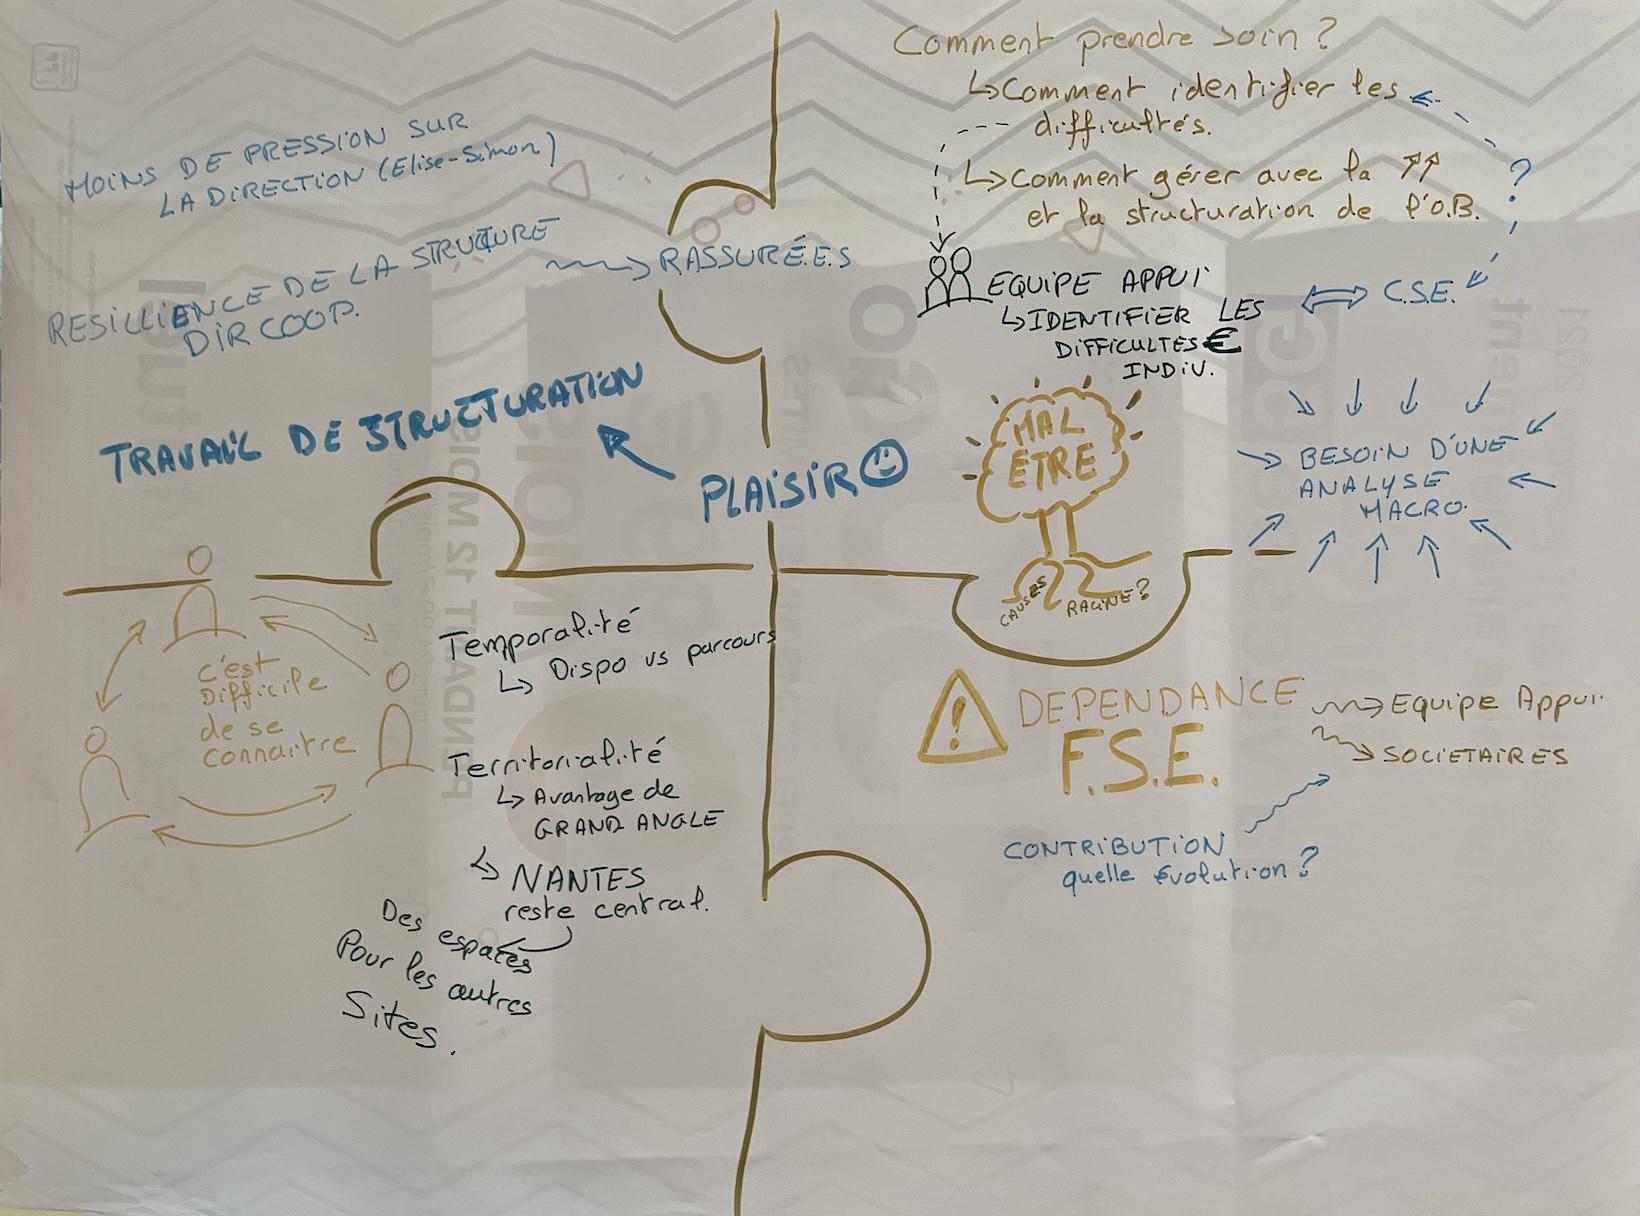 MOINS DE PRESSION SUR
LA DIRECTION (Elise-Simon)
RESILLIENCE DE LA STRUCTURE
DIR COOP.
RASSURÉ.E.S
TRAVAIL DE STRUCTURATION
PLAISIR
Comment prendre soin ?
↳ Comment identifier les
difficultés.
↳ Comment gérer avec la ↗↗
et la structuration de l'O.B.
?
EQUIPE APPUI
↳ IDENTIFIER LES
DIFFICULTES €
INDIV.
C.S.E.
MAL
ÊTRE
CAUSES RACINE ?
BESOIN D'UNE
ANALYSE
MACRO.
c'est
Difficile
de se
connaitre
Temporalité
↳ Dispo vs parcours
Territorialité
↳ Avantage de
GRAND ANGLE
↳ NANTES
reste central.
Des espaces
Pour les autres
Sites.
! DEPENDANCE
F.S.E.
Equipe Appui.
SOCIETAIRES
CONTRIBUTION
quelle évolution ?